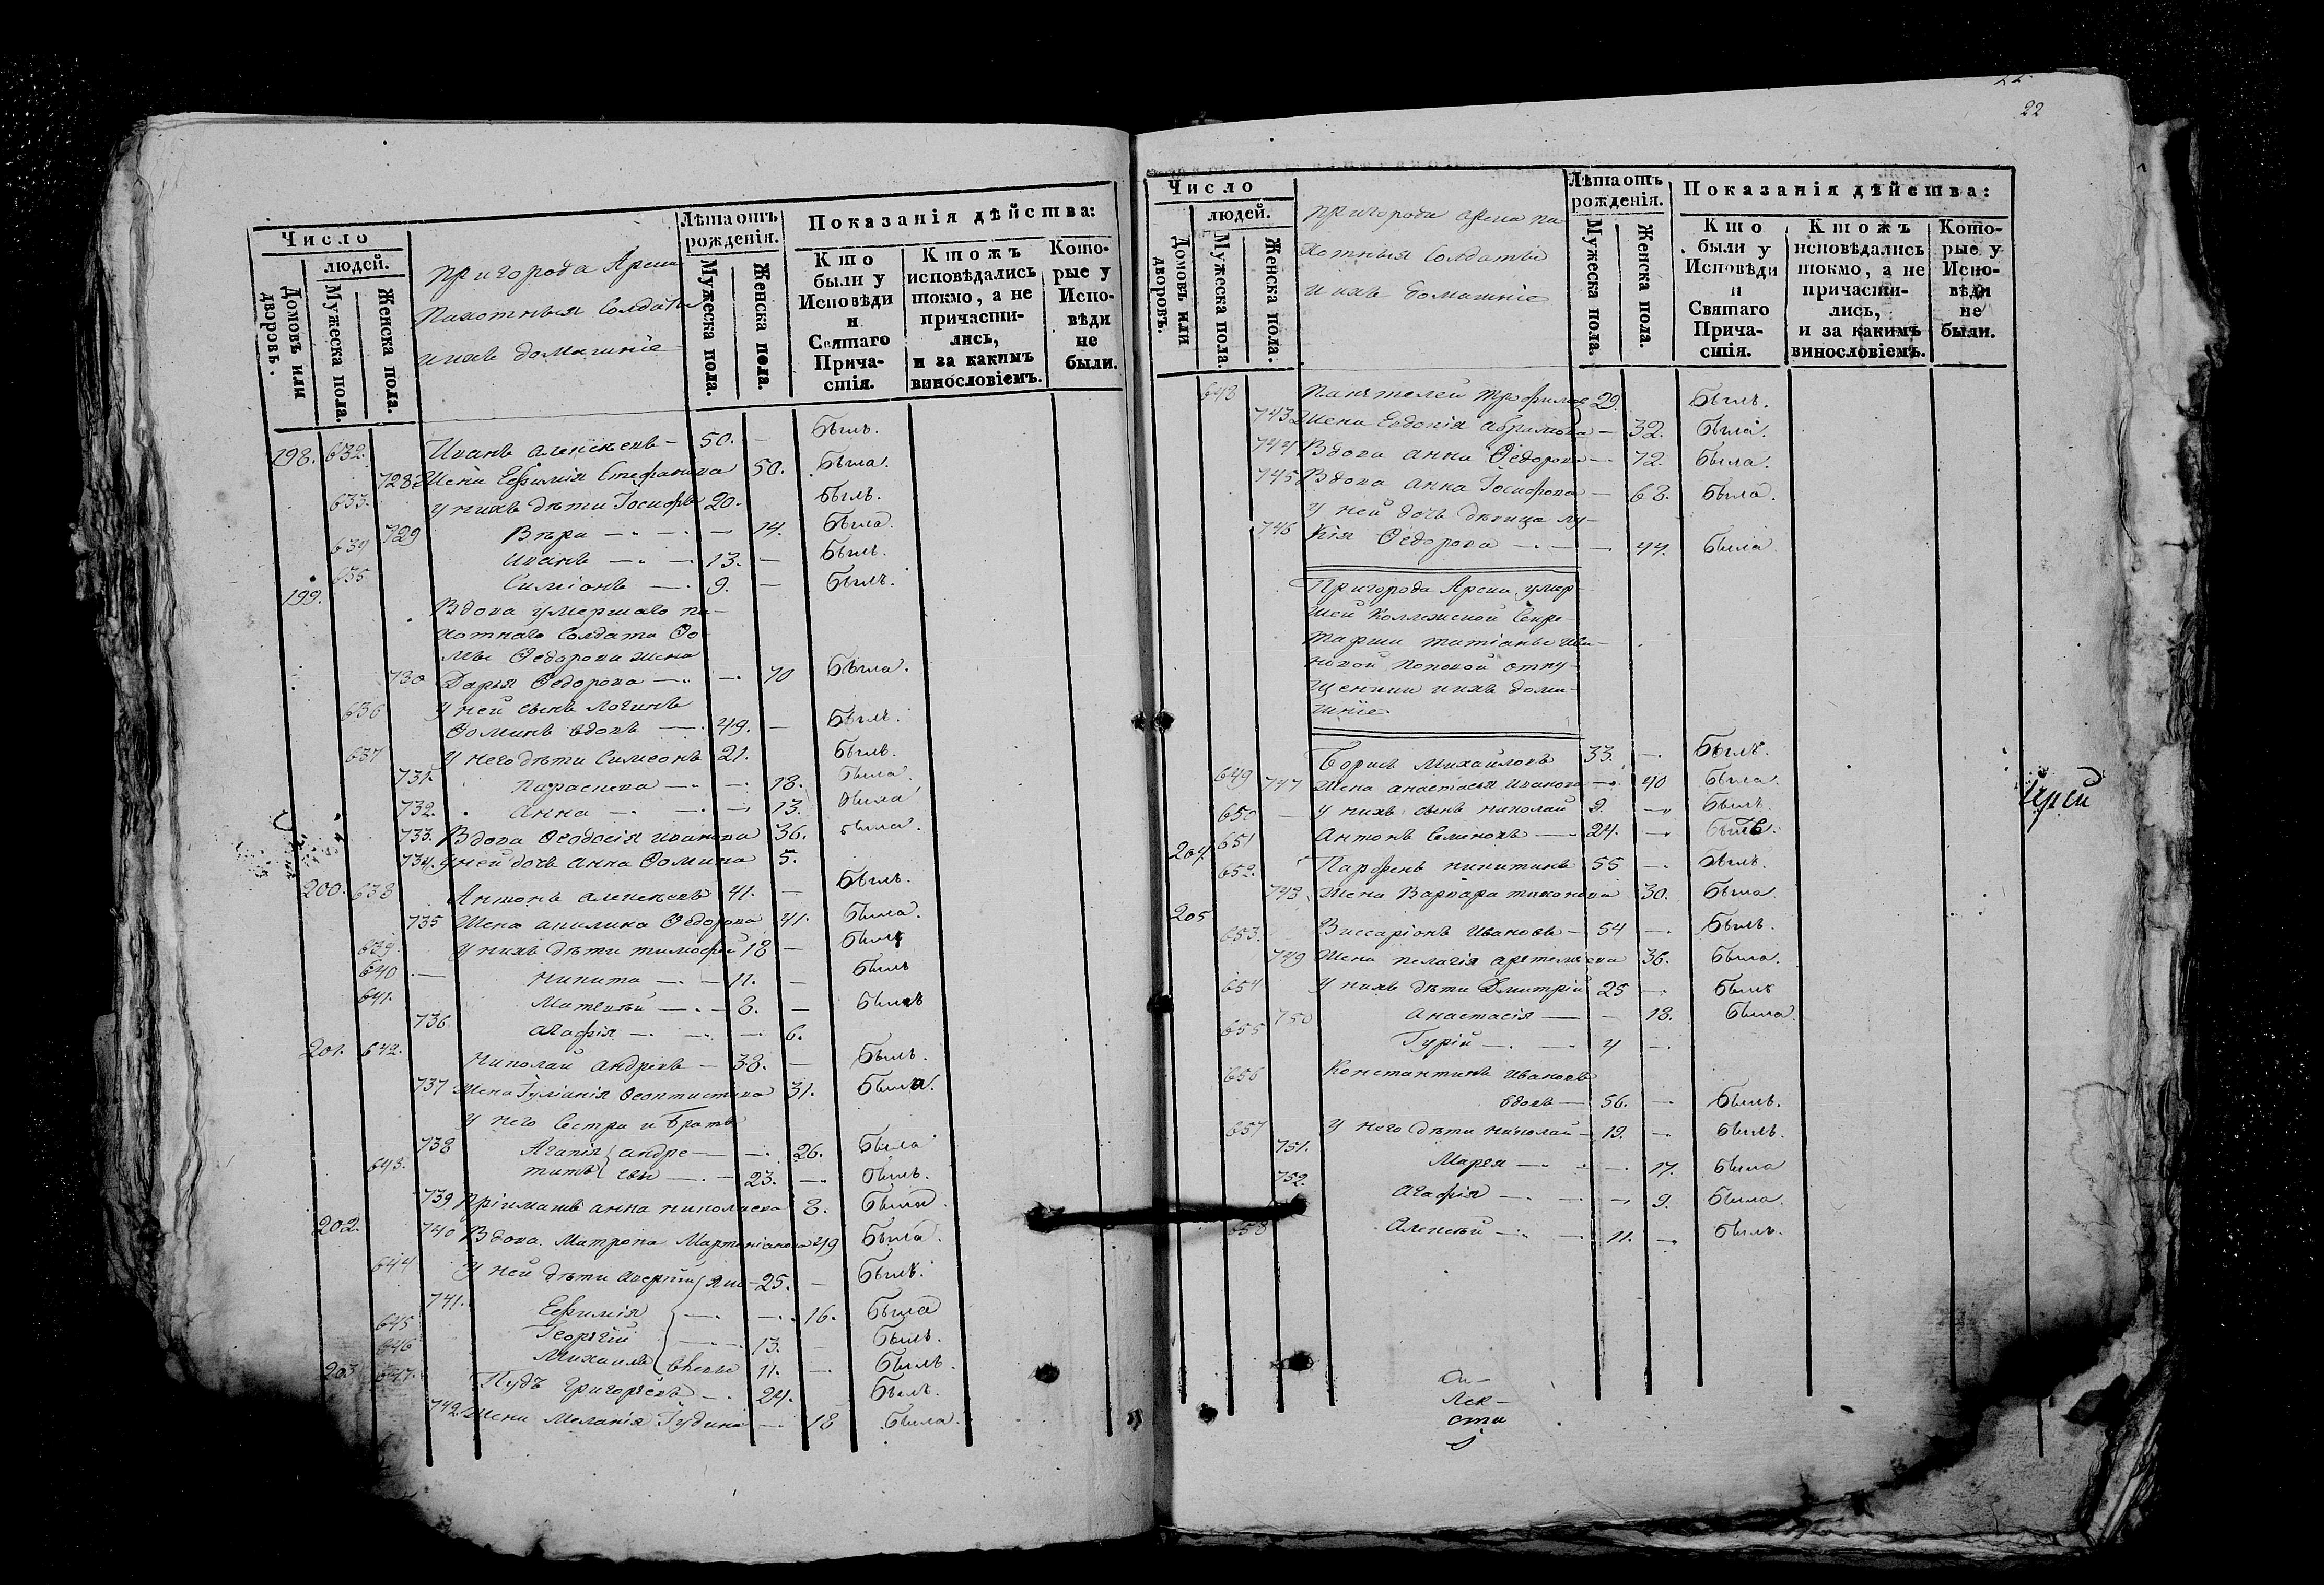 Число
людей.
Домовъ или дворовъ.
Мужеска пола.
Женска пола.
пригорода Арска
пахотныя Солдаты
и ихъ домашніе
Лѣта отъ рожденія.
Мужеска пола.
Женска пола.
Показанія дѣйства:
Кто были у Исповѣди и Святаго Прича-стія.
Ктожъ исповѣдались токмо, а не причасти-лись, и за какимъ винословіемъ.
Кото-рые у Испо-вѣди не были.
198. 632. Иванъ Алексѣевъ — 50. — Былъ.
728. Жена Ефимія Стефанова 50. Была.
633. у нихъ дѣти Іосифъ 20. Былъ.
729 Вѣра — — 14. Была.
634 Иванъ — 13. — Былъ.
635 Симіонъ — 9. — Былъ.
199.
Вдова умершаго па-
хотнаго Солдата Ѳо-
мы Ѳедорова жена
730 Дарья Ѳедорова — 70 Была.
636 у ней сынъ Логинъ
Ѳоминъ вдовъ — 49. — Былъ.
637 У него дѣти Симеонъ 21. Былъ.
731. Параскева — — 18. Была.
732. Анна — — 13. Была
733. Вдова Ѳеодосія Иванова 36. была.
734. у ней дочь Анна Ѳомина 5.
200. 638 Антонъ Алексѣевъ 41. — Былъ.
735 Жена Акилина Ѳедорова 41. Была.
639. у нихъ дѣти Тимофей 18 — Былъ
640 — Никита — 11. — Былъ
641. Матвѣй — 8. — Былъ
736 Агафія — — 6.
201. 642. Николай Андреевъ — 38. — Былъ.
737 Жена Іуліанія Ѳеоктистова 31. Была.
у него Сестра и Братъ
738 Агапія андре — — 26. Была
643. Титъ евы — 23. — Былъ.
739 Пріиматъ Анна Николаева 8. Была.
202. 740 Вдова Матрона Мартиніанова 49 Была.
644 У ней дѣти Аверкій Яко — 25. — Былъ.
741. Ефимія — — 16. Была
645 Георгій — 13. — Былъ.
646 Михаилъ влевы 11. — Былъ.
203 647. Пудъ Григорьевъ — 24. Былъ.
742. Жена Меланія Іудина — 18 Была.
22
Число
людей.
Домовъ или дворовъ.
Мужеска пола.
Женска пола.
пригорода Арска па-
хотныя Солдаты
и ихъ домашніе
Лѣта отъ рожденія.
Мужеска пола.
Женска пола.
Показанія дѣйства:
Кто были у Исповѣди и Святаго Прича-стія.
Ктожъ исповѣдались токмо, а не причасти-лись, и за какимъ винословіемъ.
Кото-рые у Испо-вѣди не были.
648 Пантелей Трофимовъ 29. Былъ.
743 Жена Евдокія Абрамова — 32. Была.
744 Вдова Анна Ѳедорова — 72. Была.
745 Вдова Анна Іосифова — 68. Была.
у ней дочь дѣвица Лу-
746 кія Ѳедорова — — 44. Была.
Пригорода Арска умер-
шей Коллежской Секре-
тарши Татіаны Ива-
новой Поповой отпу-
щенники и ихъ дома-
шніе
Борисъ Михайловъ 33. — Былъ.
649 747 Жена Анастасья Иванова — 40 Была.
650 — у нихъ сынъ Николай 9. — Былъ.
651 Антонъ Семеновъ — 24. — Былъ.
204
652. Парфенъ Никитинъ 55 — Былъ.
748. Жена Варвара Тихонова 30. Была.
205
653. Виссаріонъ Ивановъ — 54 — Былъ.
749 Жена Пелагія Артемьева 36. Была.
654 у нихъ дѣти Дмитрій 25 — Былъ
750 Анастасія — — 18. Была.
655 Гурій — — 4 —
656 Константинъ Ивановъ
вдовъ — 56. — Былъ.
657 У него дѣти Николай — 19. — Былъ.
751. Марья — — 17. Была
752. Агафія — — 9. Была.
658 Алексѣй — — 11. — Былъ.